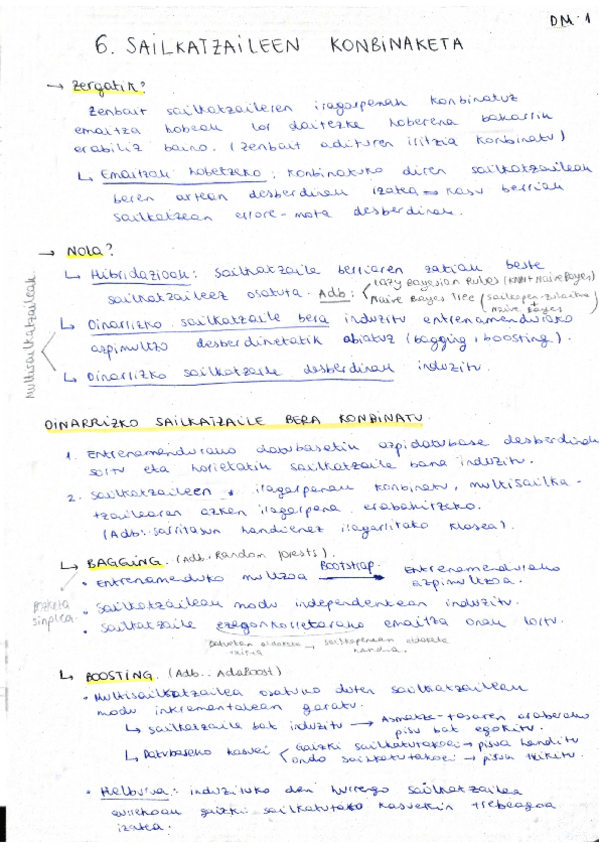 DM.1
6. SAILKATZAILEEN KONBINAKETA
→ Zergatik?
Zenbait sailkatzaileren iragarpenak konbinatuz
emaitza hobeak lor daitezke hoberena bakarrik
erabiliz baino. (Zenbait adituren iritzia konbinatu)
↳ Emaitzak hobetzeko: konbinatuko diren sailkatzaileak
beren artean desberdinak izatea → kasu berriak
sailkatzean errore-mota desberdinak.
→ Nola?
↳ Hibridazioak: sailkatzaile berriaren zatiak beste
sailkatzaileez osatuta. Adb: Lazy Bayesian Rules (KNN+Naive Bayes)
Naive Bayes Tree (sailkapen-zuhaitza +
Naive Bayes)
Multisailkatzaileak
↳ Oinarrizko sailkatzaile bera induzitu entrenamenduko
azpimultzo desberdinetatik abiatuz (bagging, boosting).
↳ Oinarrizko sailkatzaile desberdinak induzitu.
OINARRIZKO SAILKATZAILE BERA KONBINATU
1. Entrenamendurako datubasetik azpidatubase desberdinak
sortu eta horietatik sailkatzaile bana induzitu.
2. Sailkatzaileen iragarpenak konbinatu, multisailka-
tzailearen azken iragarpena erabakitzeko.
(Adb: sarritasun handienez iragarritako klasea).
↳ BAGGING. (Adb: Random forests).
• Entrenamenduko multzoa Bootstrap → Entrenamendurako
azpimultzoa.
Bozketa
sinplea.
• Sailkatzaileak modu independentean induzitu.
• Sailkatzaile ezegonkorretarako emaitza onak lortu.
Datuetan aldaketa → sailkapenean aldaketa
txikia handia.
↳ BOOSTING. (Adb.: AdaBoost)
• Multisailkatzailea osatuko duten sailkatzaileak
modu inkrementalean garatu.
↳ sailkatzaile bat induzitu → Asmatze-tasaren araberako
pisu bat egokitu.
↳ Datubaseko kasuei Gaizki sailkatutakoei → pisua handitu
ondo sailkatutakoei → pisua txikitu.
• Helburua: induzituko den hurrengo sailkatzailea
aurrekoak gaizki sailkatutako kasuekin trebeagoa
izatea.